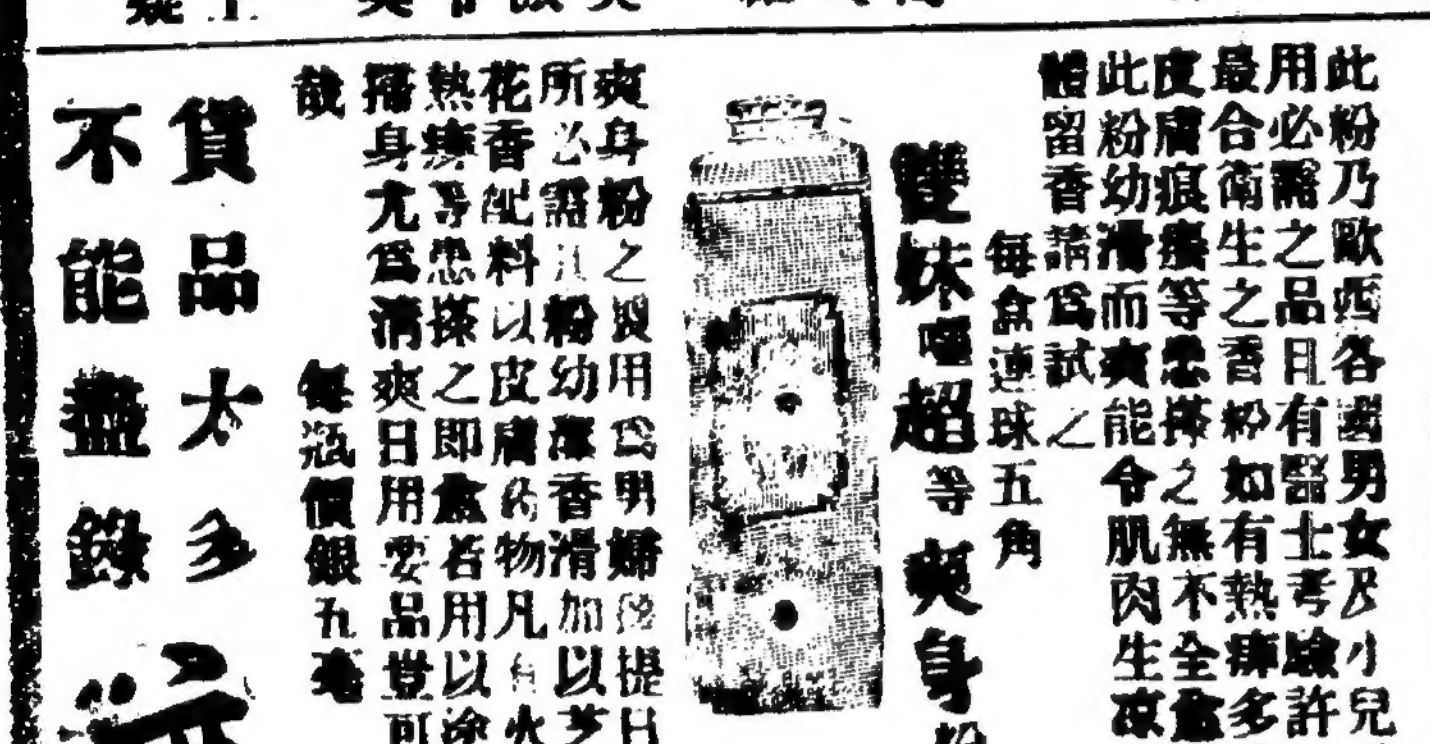 此粉乃歐西各國男女及小兒
用必需之品且有醫士考驗許
最合衛生之香粉如有熱痱多
皮膚痕癢等患搽之無不全愈
此粉幼滑而爽能令肌肉生涼
體留香請為試之
每盒連球五角
雙妹嚜超等爽身粉
爽身粉之製用為男婦孩提日
所必需此粉幼潔香滑加以芝
花香配料以皮膚药物凡有火
熱痱等患搽之即愈若用以涂
搔身尤為清爽日用要品豈可
哉
每瓶價銀五毫
貨品太多
不能盡錄